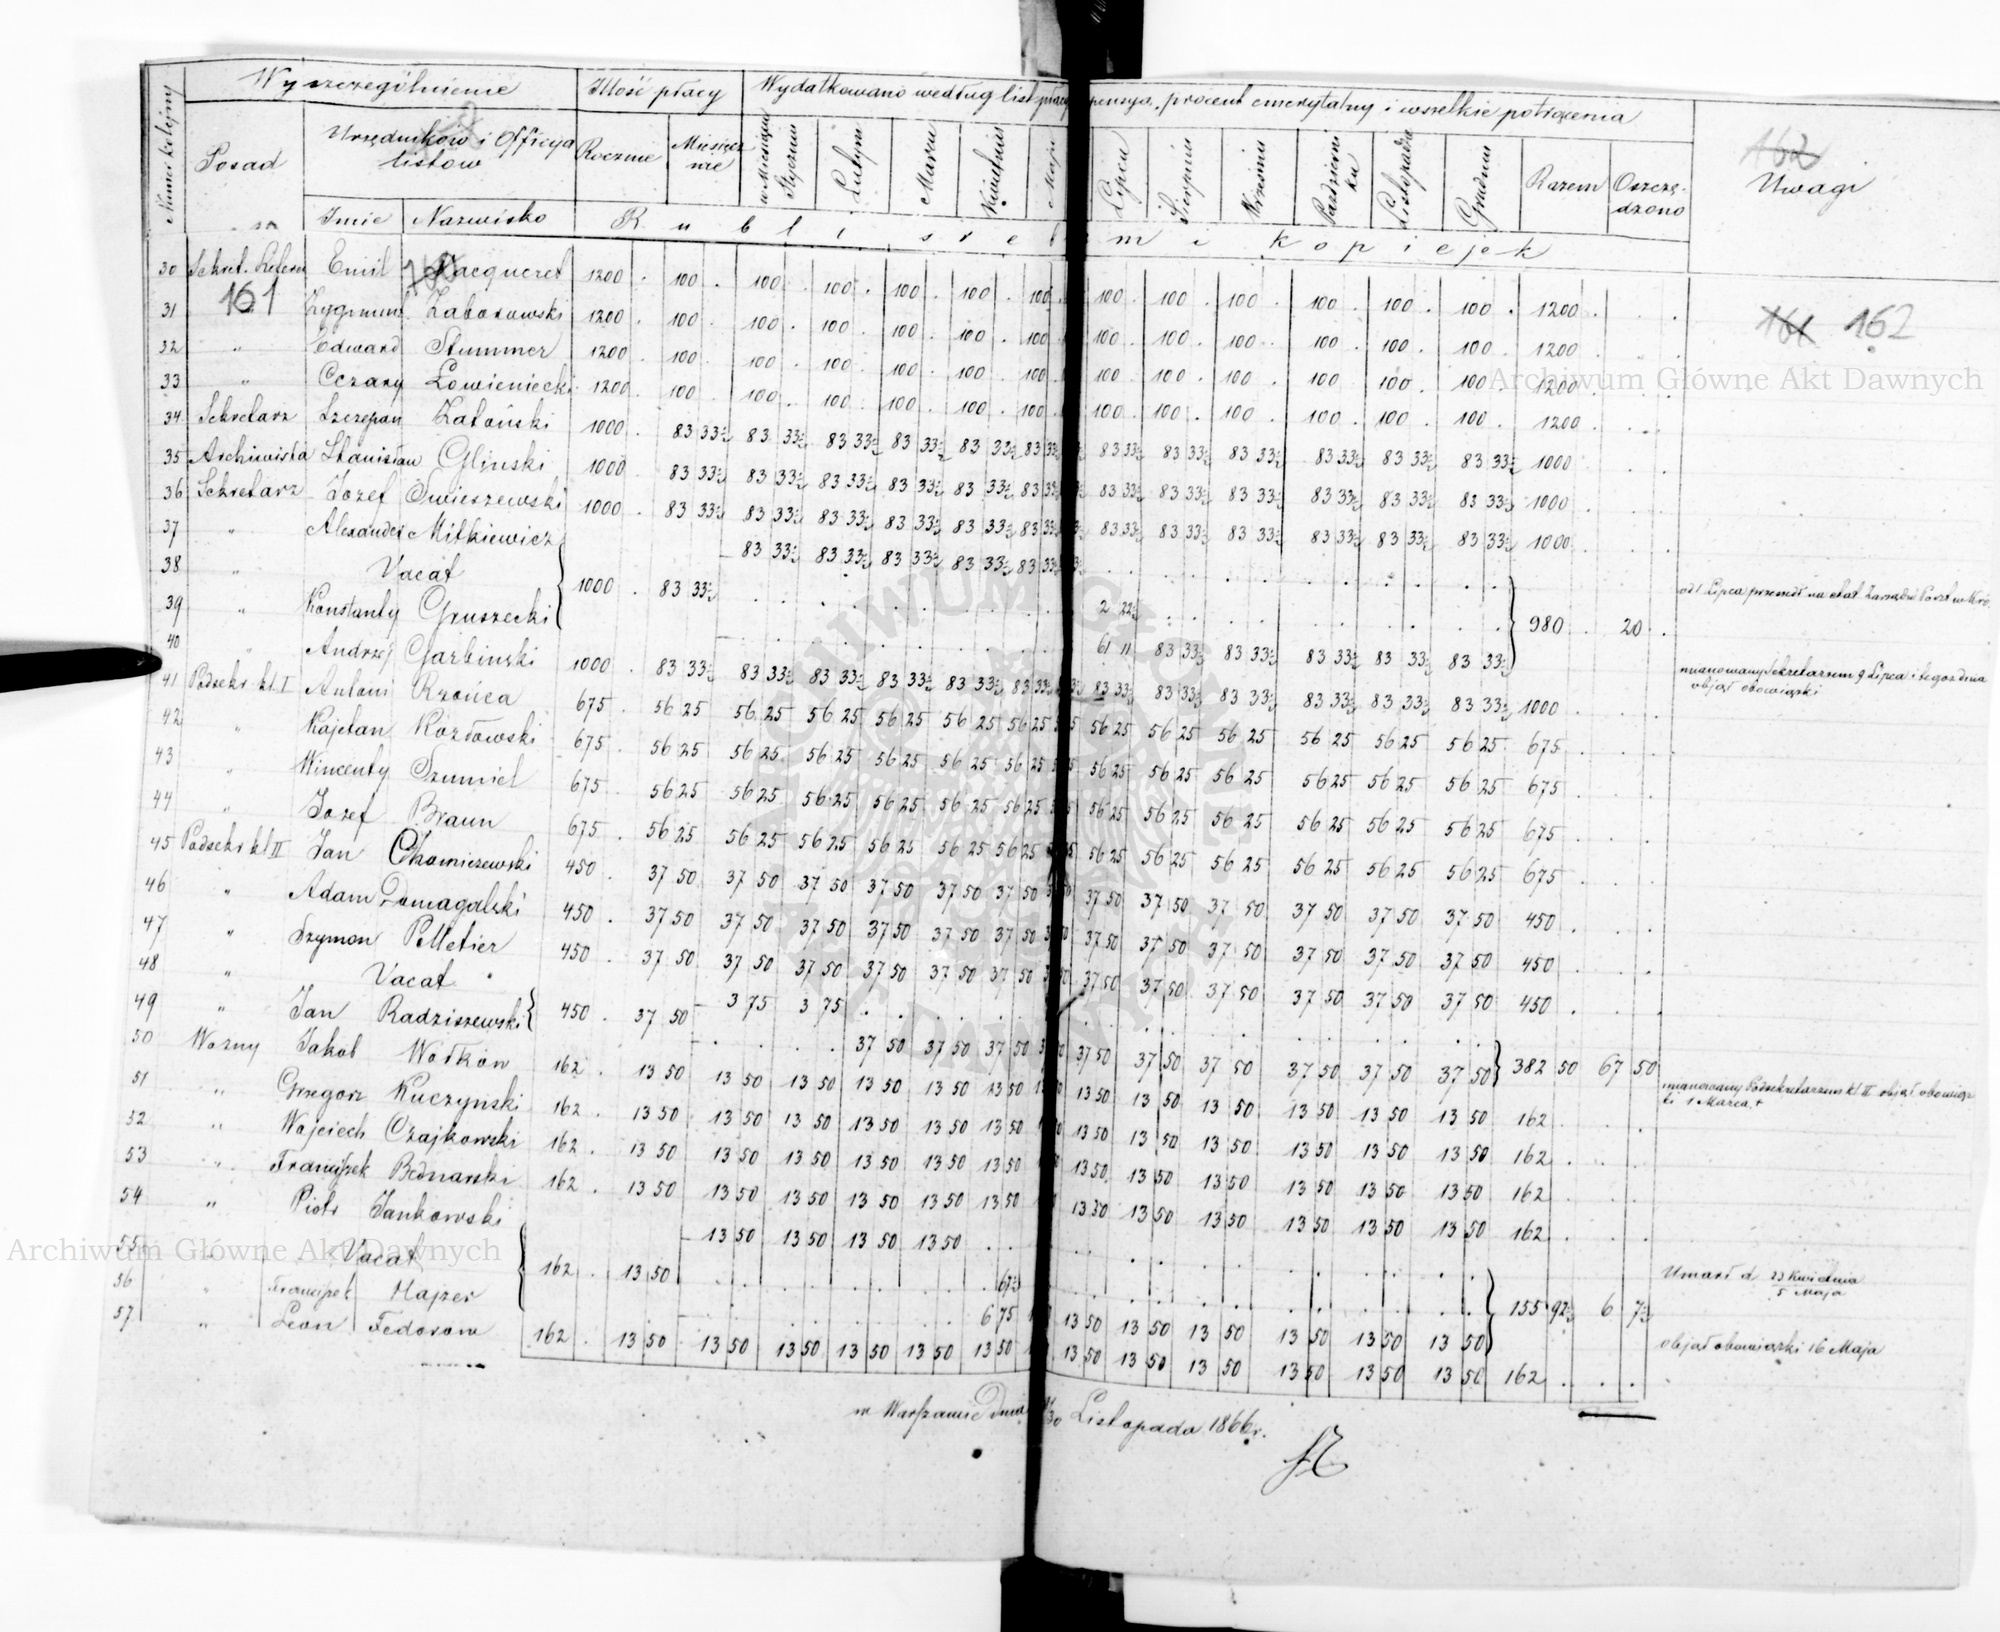 Numer kolejny Wyszczególnienie Ilość płacy Wydatkowano według list płacy pensya, procent emerytalny i wszelkie potrącenia
Posad Urzędników i Officya Rocznie Miesięcz w Miesiącu Styczniu Lutym Marcu Kwietniu Maju Lipcu Sierpniu Wrześniu Październi Listopadzie Grudniu Razem Oszczę- Uwagi
listów nie ku dzono
162
Imie Nazwisko Rubli srebrem i kopiejek
30 Sekret. Emil Jacqueret 1200 . 100 . 100 . 100 . 100 . 100 . 100 100 . 100 . 100 . 100 . 100 . 100 . 1200 . . .
161
161 162
31 Zygmunt Zaborowski 1200 . 100 . 100 . 100 . 100 . 100 . 100 100 . 100 . 100 . 100 . 100 . 100 . 1200 . . .
32 " Edward Stummer 1200 . 100 . 100 . 100 . 100 . 100 . 100 100 . 100 . 100 . 100 . 100 . 100 . 1200 . . .
33 " Cezary Łowieniecki 1200 . 100 . 100 . 100 . 100 . 100 . 100 100 . 100 . 100 . 100 . 100 . 100 . 1200 . . .
34 Sekretarz Szczepan Zatoński 1000 . 83 33⅓ 83 33⅓ 83 33⅓ 83 33⅓ 83 33⅓ 83 33 83 33⅓ 83 33⅓ 83 33⅓ 83 33⅓ 83 33⅓ 83 33⅓ 1000 . . .
35 Archiwista Stanisław Glinski 1000 . 83 33⅓ 83 33⅓ 83 33⅓ 83 33⅓ 83 33⅓ 83 33 83 33⅓ 83 33⅓ 83 33⅓ 83 33⅓ 83 33⅓ 83 33⅓ 1000 . . .
36 Sekretarz Jozef Swieszewski 1000 . 83 33⅓ 83 33⅓ 83 33⅓ 83 33⅓ 83 33⅓ 83 33 83 33⅓ 83 33⅓ 83 33⅓ 83 33⅓ 83 33⅓ 83 33⅓ 1000 . . .
37 " Alexander Mitkiewicz 83 33⅓ 83 33⅓ 83 33⅓ 83 33⅓ 83 33 od 1 Lipca przeszedł na etat Zarządu Poczt w Kró.
38 " Vacat 1000 . 83 33⅓ 2 22 980 . 20 .
39 " Konstanty Gruszecki 61 11 83 33⅓ 83 33⅓ 83 33⅓ 83 33⅓ 83 33⅓ mianowany Sekretarzem 9 Lipca i tegoż dnia
objął obowiązki
40 " Andrzej Garbinski 1000 . 83 33⅓ 83 33⅓ 83 33⅓ 83 33⅓ 83 33⅓ 83 33 83 33⅓ 83 33⅓ 83 33⅓ 83 33⅓ 83 33⅓ 83 33⅓ 1000 . . .
41 Podsekr kl. I Antoni Rzońca 675 . 56 25 56 25 56 25 56 25 56 25 56 25 56 25 56 25 56 25 56 25 56 25 56 25 675 . . .
42 " Kajetan Kozłowski 675 . 56 25 56 25 56 25 56 25 56 25 56 25 56 25 56 25 56 25 56 25 56 25 56 25 675 . . .
43 " Wincenty Szumiel 675 . 56 25 56 25 56 25 56 25 56 25 56 25 56 25 56 25 56 25 56 25 56 25 56 25 675 . . .
44 " Jozef Braun 675 . 56 25 56 25 56 25 56 25 56 25 56 25 56 25 56 25 56 25 56 25 56 25 56 25 675 . . .
45 Podsekr kl II Jan Chomiczewski 450 . 37 50 37 50 37 50 37 50 37 50 37 50 37 50 37 50 37 50 37 50 37 50 37 50 450 . . .
46 " Adam Domagalski 450 . 37 50 37 50 37 50 37 50 37 50 37 50 37 50 37 50 37 50 37 50 37 50 37 50 450 . . .
47 " Szymon Pelletier 450 . 37 50 37 50 37 50 37 50 37 50 37 50 37 50 37 50 37 50 37 50 37 50 37 50 450 . . .
48 " Vacat 3 75 3 75
49 " Jan Radziszewski 450 . 37 50 37 50 37 50 37 50 37 50 37 50 37 50 37 50 37 50 37 50 382 50 67 50 mianowany Podsekretarzem kl II objął obowiąz
ki 1 Marca
50 Wozny Jakob Wołkow 162 . 13 50 13 50 13 50 13 50 13 50 13 50 13 50 13 50 13 50 13 50 13 50 13 50 162 . . .
51 " Grzegorz Kuczynski 162 . 13 50 13 50 13 50 13 50 13 50 13 50 13 50 13 50 13 50 13 50 13 50 13 50 162 . . .
52 " Wojciech Czajkowski 162 . 13 50 13 50 13 50 13 50 13 50 13 50 13 50 13 50 13 50 13 50 13 50 13 50 162 . . .
53 " Franciszek Bednarski 162 . 13 50 13 50 13 50 13 50 13 50 13 50 13 50 13 50 13 50 13 50 13 50 13 50 162 . . .
54 " Piotr Jankowski 13 50 13 50 13 50 13 50 Umarł d. 23 Kwietnia
5 Maja
55 Vacat 162 . 13 50 67½ 155 92½ 6 7½
56 " Franciszek Hajzer 6 75 13 50 13 50 13 50 13 50 13 50 13 50 objął obowiązki 16 Maja
57 " Leon Fedorow 162 . 13 50 13 50 13 50 13 50 13 50 13 50 13 50 13 50 13 50 13 50 13 50 13 50 162 . . .
w Warszawie Dnia 30 Listopada 1866 r.
Archiwum Główne Akt Dawnych
Archiwum Główne Akt Dawnych
ARCHIWUM GŁÓWNE AKT DAWNYCH